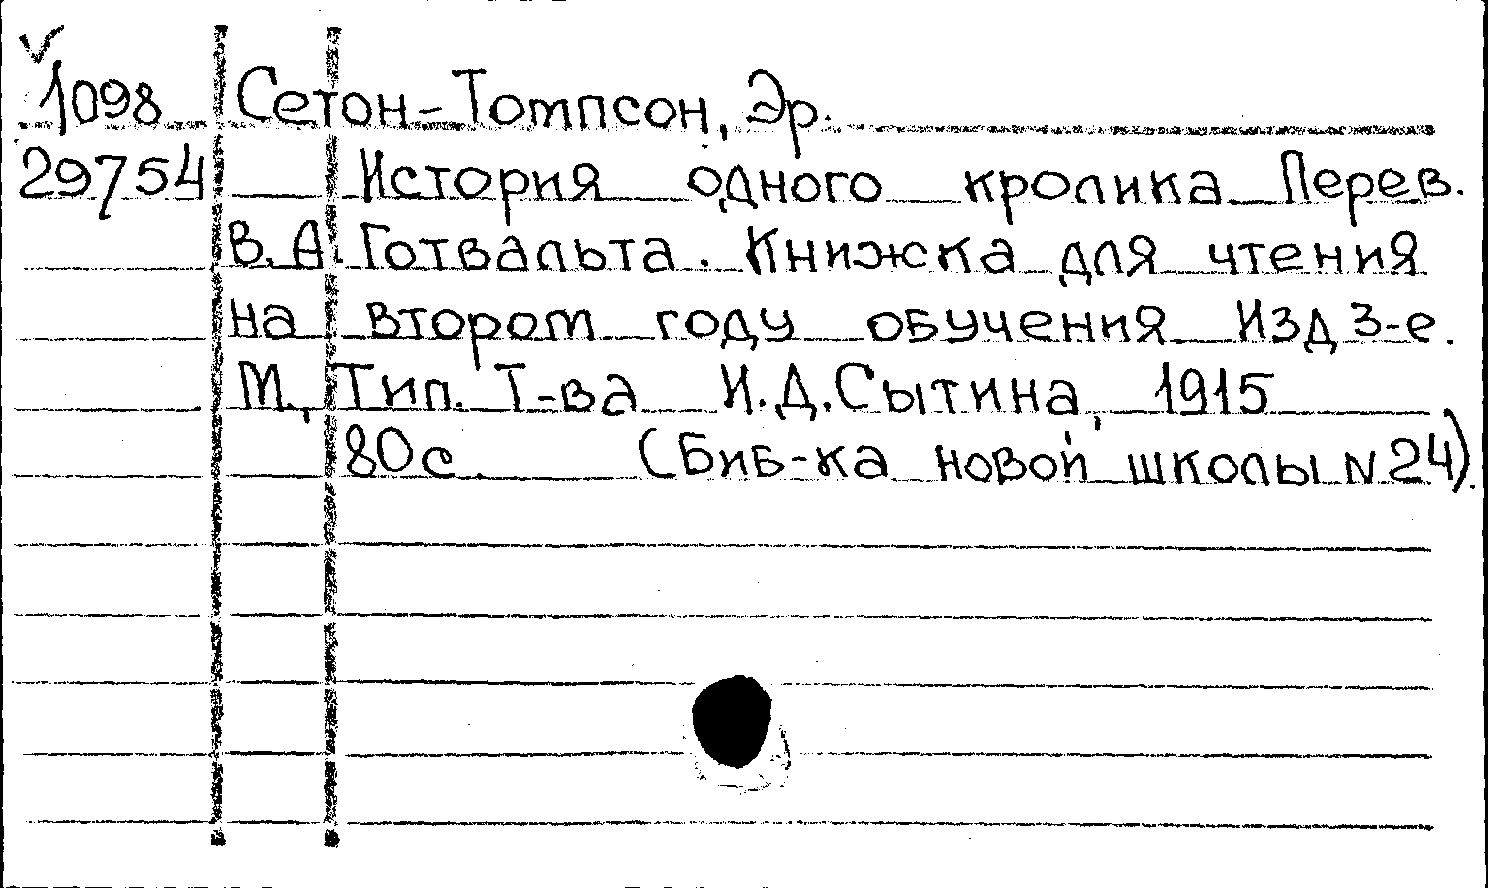 1098 Сетон-Томпсон, Эр.
29754 История одного кролика Перев.
В.А. Готвальта. Книжка для чтения
на втором году обучения Изд 3-е.
М., Тип. Т-ва И.Д.Сытина, 1915
80с. (Биб-ка новой школы N24).